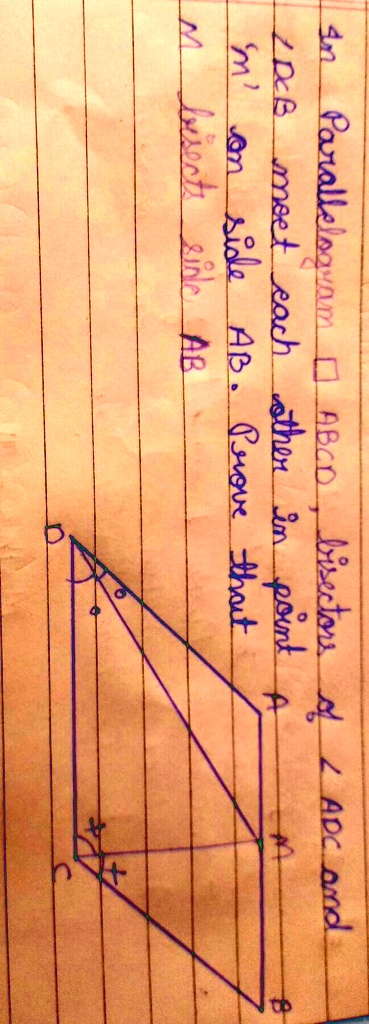 In Parallelogram □ ABCD, bisectors of ∠ADC and
∠DCB meet each other in point
'M' on side AB. Prove that
M bisects side AB
A
M
B
D
C